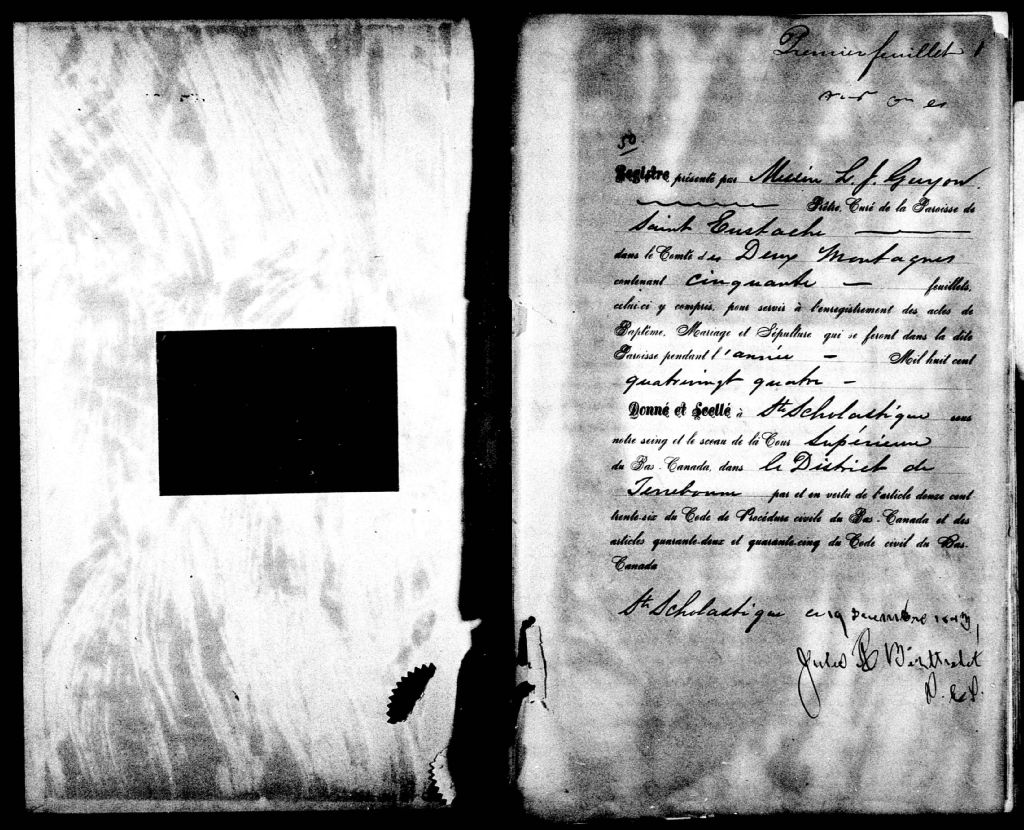 Premier feuillet 1
50
Registre présenté par Messire L. J. Guyon
Prêtre, Curé de la Paroisse de
Saint Eustache
dans le Comté des Deux Montagnes
contenant cinquante feuillets,
celui-ci y compris, pour servir à l'enregistrement des actes de
Baptême, Mariage et Sépulture qui se feront dans la dite
Paroisse pendant l'année Mil huit cent
quatrevingt quatre
Donné et Scellé à Ste Scholastique sous
notre seing et le sceau de la Cour Supérieure
du Bas-Canada, dans le District de
Terrebonne par et en vertu de l'article douze cent
trente-six du Code de Procédure civile du Bas-Canada et des
articles quarante-deux et quarante-cinq du Code civil du Bas-
Canada
Ste Scholastique ce 19 Decembre
Jules